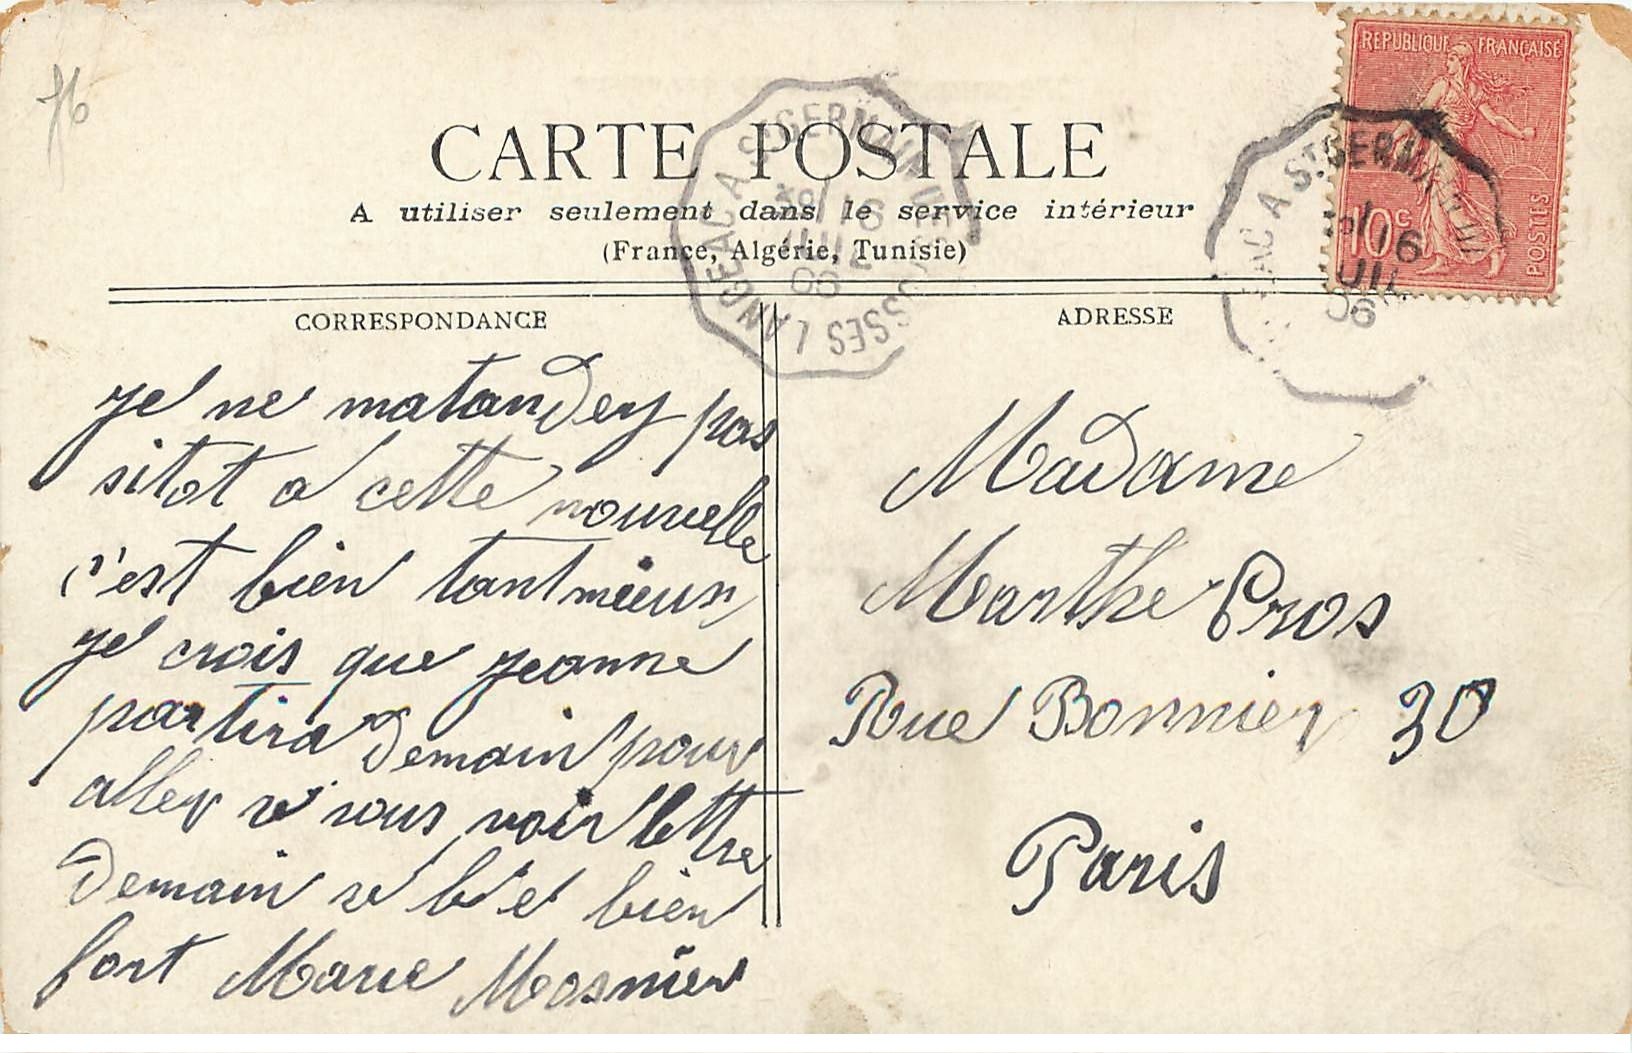 76
CARTE POSTALE
A utiliser seulement dans le service intérieur
(France, Algérie, Tunisie)
REPUBLIQUE FRANÇAISE
10c
POSTES
LANGEAC A ST GERMAIN DES FOSSES
16
JUIL
06
AC A ST GERMAIN
16
JUIL
06
CORRESPONDANCE
je ne matandey pas
sitot a cette nouvelle
c'est bien tant mieux
je crois que jeanne
partira demain pour
aller vous voir lettre
demain bien
fort Marie Mosnier
ADRESSE
Madame
Marthe Cros
Rue Bonnier 30
Paris